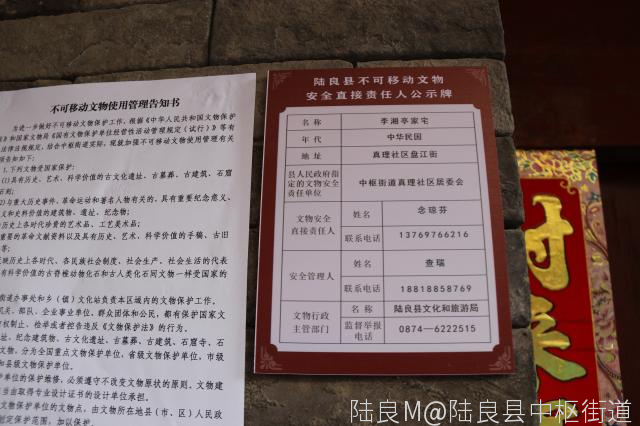 不可移动文物使用管理告知书
为进一步做好不可移动文物保护工作，根据《中华人民共和国文物保护
》和国家文物局《国有文物保护单位经营性活动管理规定（试行）》等有
法律法规规定，结合中枢街道实际，现就加强不可移动文物使用管理有关
项告知如下：
1、下列文物受国家保护：
1)具有历史、艺术、科学价值的古文化遗址、古墓葬、古建筑、石窟
石刻；
2)与重大历史事件、革命运动和著名人物有关的，具有重要纪念意义、
义和史料价值的建筑物、遗址、纪念物；
历史上各时代珍贵的艺术品、工艺美术品；
重要的革命文献资料以及具有历史、艺术、科学价值的手稿、古旧
等；
映历史上各时代、各民族社会制度、社会生产、社会生活的代表
有科学价值的古脊椎动物化石和古人类化石同文物一样受国家的
街道办事处和乡（镇）文化站负责本区域内的文物保护工作。
机关、部队、企业事业单位、群众团体和公民，都有保护国家文
权制止、检举或者控告违反《文物保护法》的行为。
址、纪念建筑物、古文化遗址、古墓葬、古建筑、石窟寺、石
文物，分为全国重点文物保护单位，省级文物保护单位，市级
和县级文物保护单位。
单位的保护维修，必须遵守不改变文物原状的原则。文物建
当由取得专业设计证书的设计单位承担。
文物保护单位的文物点，由文物所在地县（市、区）人民政
划定保护范围，加以保护。
陆良县不可移动文物
安全直接责任人公示牌
名称 李湘亭家宅
年代 中华民国
地址 真理社区盘江街
县人民政府指定的文物安全责任单位 中枢街道真理社区居委会
文物安全直接责任人 姓名 念琼芬
联系电话 13769766216
安全管理人 姓名 查瑞
联系电话 18818858769
文物行政主管部门 名称 陆良县文化和旅游局
监督举报电话 0874—6222515
陆良M@陆良县中枢街道